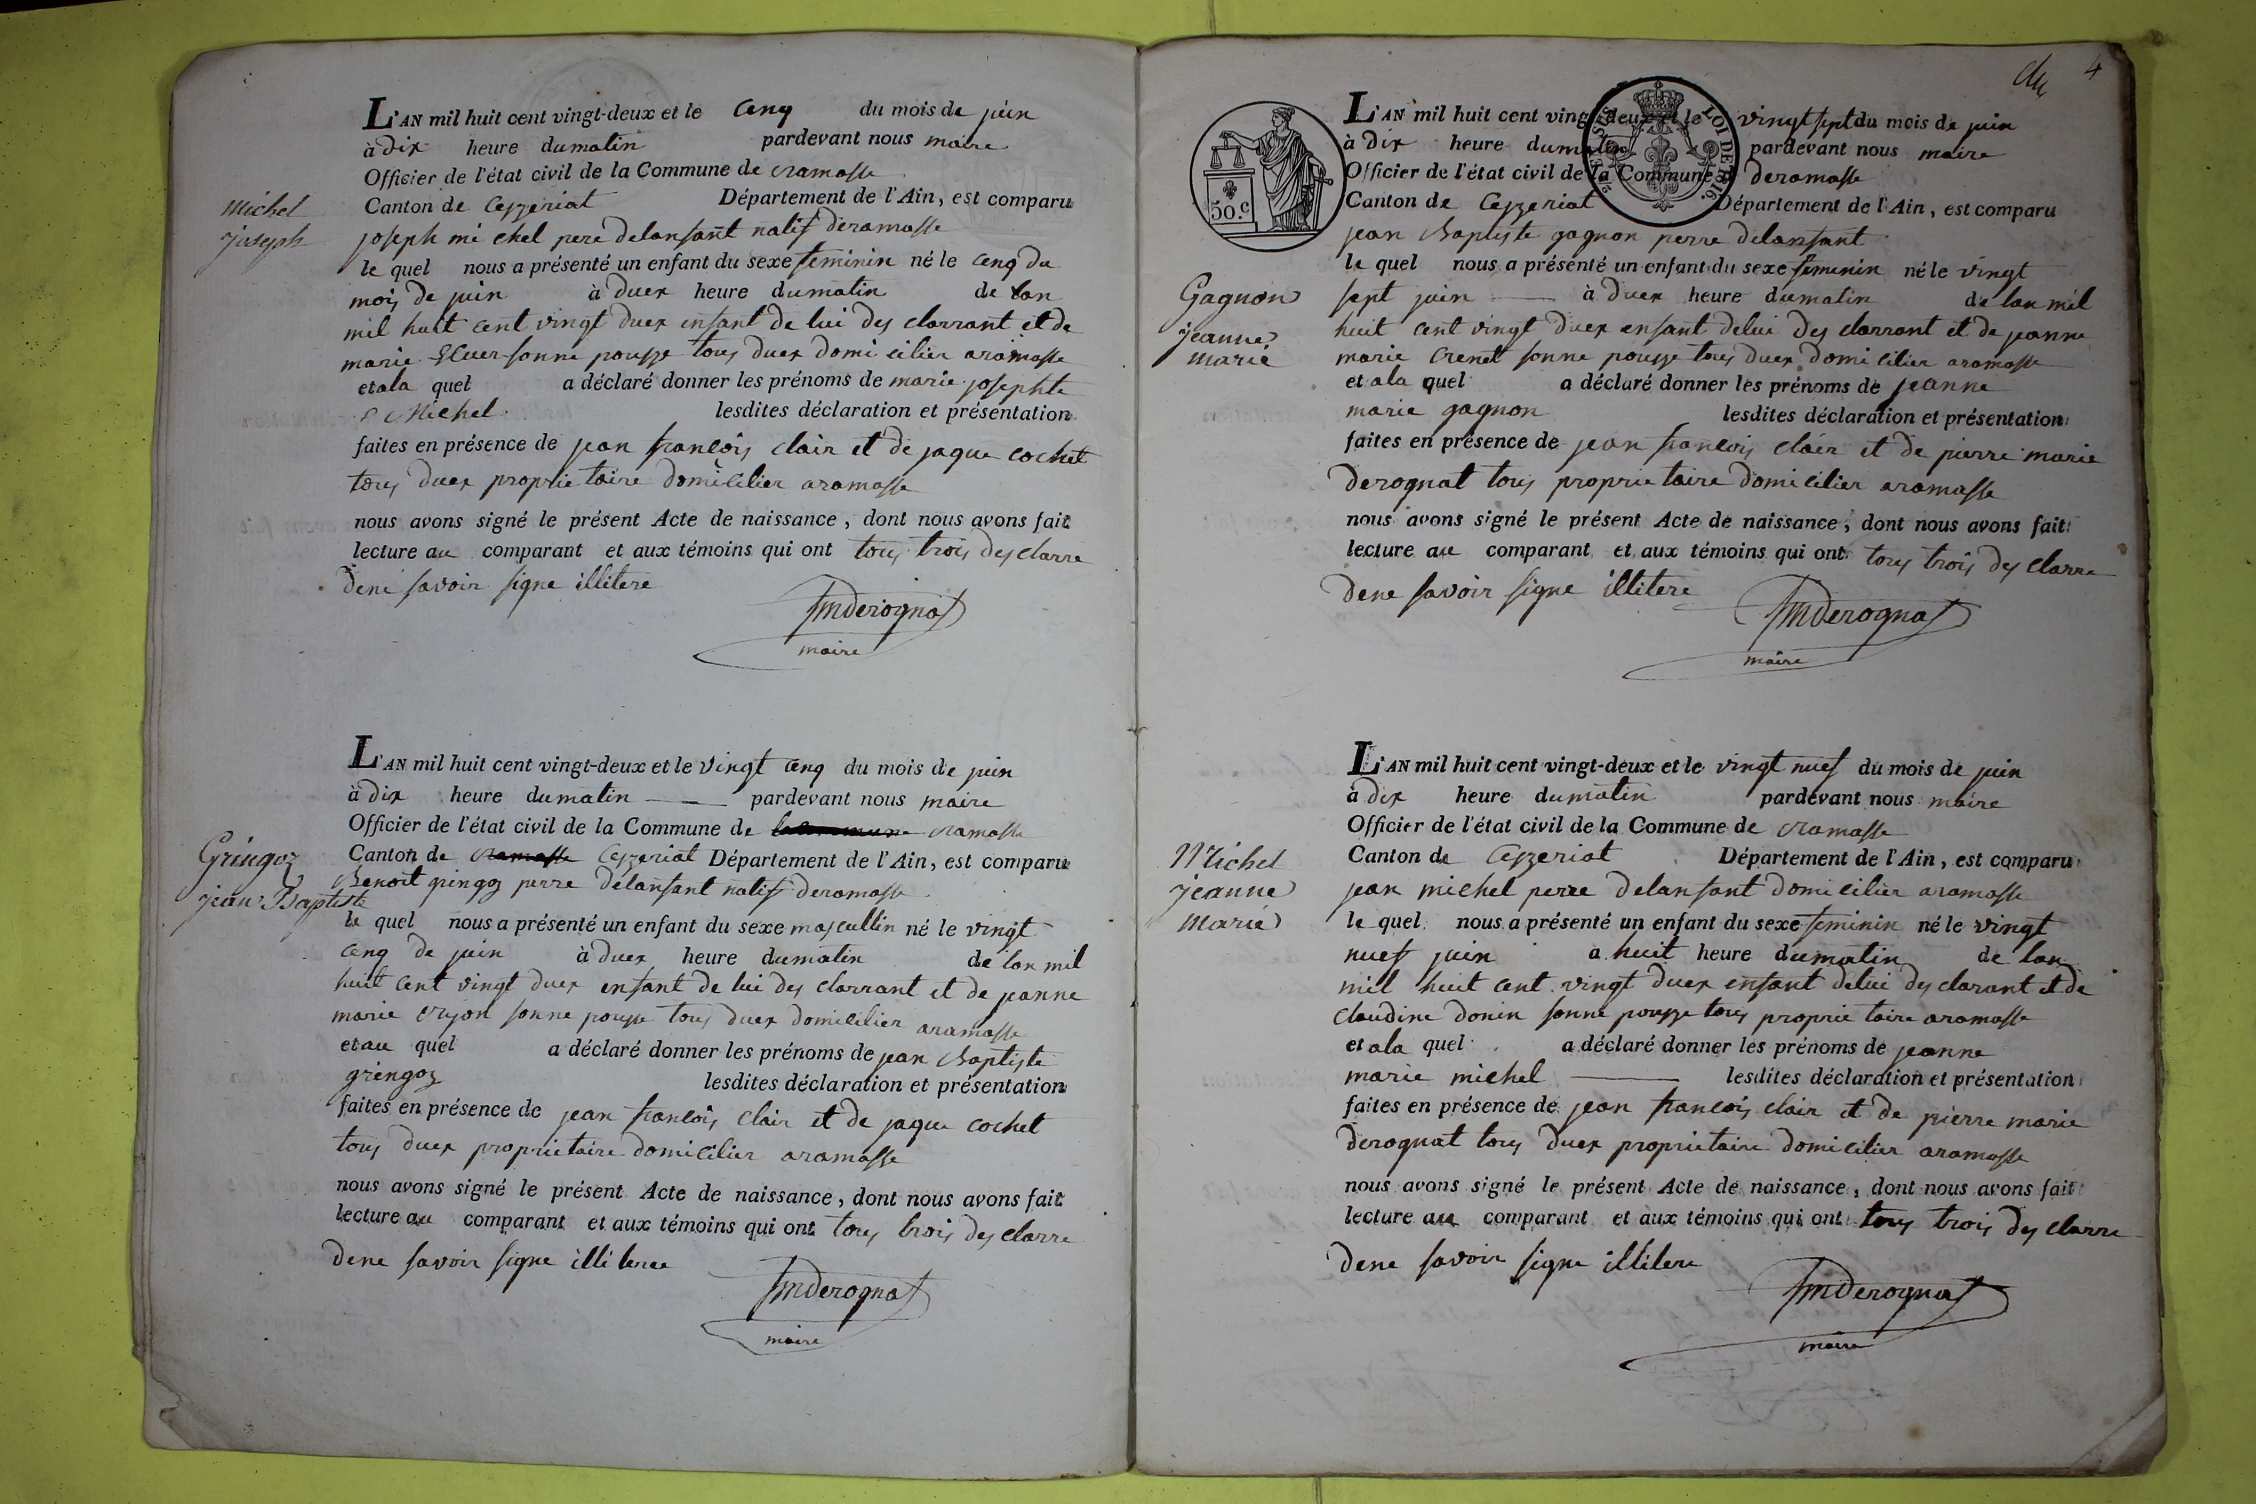 L'AN mil huit cent vingt-deux et le cenq du mois de juin
à dix heure du matin pardevant nous maire
Officier de l'état civil de la Commune de ramasse
Canton de Ceyzeriat Département de l'Ain, est comparu
Michel
joseph
joseph michel pere delansant natif deramasse
le quel nous a présenté un enfant du sexe feminin né le cenq du
mois de juin à duex heure du matin de lan
mil huit cent vingt duex ensant de lui des clarrant et de
marie sonne pousse tous duex domicilier aramasse
et ala quel a déclaré donner les prénoms de marie josephte
Michel lesdites déclaration et présentation
faites en présence de jean françois clair et de jaque cochet
tous duex proprietaire domicilier aramasse
nous avons signé le présent Acte de naissance, dont nous avons fait
lecture au comparant et aux témoins qui ont tous trois des clarre
dene savoir signe illitere
maire
L'AN mil huit cent vingt-deux et le vingt cenq du mois de juin
à dix heure du matin pardevant nous maire
Officier de l'état civil de la Commune de ramasse
Canton de ramasse Ceyzeriat Département de l'Ain, est comparu
Gringoz
jean Baptiste
Benoit gringoz perre delansant natif deramasse
le quel nous a présenté un enfant du sexe mascullin né le vingt
cenq de juin à duex heure du matin de lan mil
huit cent vingt duex ensant de lui des clarrant et de jeanne
marie sonne pousse tous duex domicilier aramasse
et au quel a déclaré donner les prénoms de jean Baptiste
gringoz lesdites déclaration et présentation
faites en présence de jean françois clair et de jaque cochet
tous duex proprietaire domicilier aramasse
nous avons signé le présent Acte de naissance, dont nous avons fait
lecture au comparant et aux témoins qui ont tous trois des clarre
dene savoir signe
maire
4
50.c
LOI DE 1816.
L'AN mil huit cent vingt-deux et le vingt sept du mois de juin
à dix heure du matin pardevant nous maire
Officier de l'état civil de la Commune deramasse
Canton de Ceyzeriat Département de l'Ain, est comparu
jean Baptiste gagnon perre delansant
Gagnon
jeanne
marie
le quel nous a présenté un enfant du sexe feminin né le vingt
sept juin à duex heure du matin de lan mil
huit cent vingt duex ensant delui des clarrant et de jeanne
marie crenet sonne pousse tous duex domicilier aramasse
et ala quel a déclaré donner les prénoms de jeanne
marie gagnon lesdites déclaration et présentation
faites en présence de jean françois clair et de pierre marie
derognat tous proprietaire domicilier aramasse
nous avons signé le présent Acte de naissance, dont nous avons fait
lecture au comparant et aux témoins qui ont tous trois des clarre
dene savoir signe illitere
maire
L'AN mil huit cent vingt-deux et le vingt nuef du mois de juin
à dix heure du matin pardevant nous maire
Officier de l'état civil de la Commune de ramasse
Canton de Ceyzeriat Département de l'Ain, est comparu
Michel
jeanne
marie
jean michel perre delansant domicilier aramasse
le quel nous a présenté un enfant du sexe feminin né le vingt
nuef juin a huit heure du matin de lan
mil huit cent vingt duex ensant delui des clarant et de
claudine donin sonne pousse tous proprietaire aramasse
et ala quel a déclaré donner les prénoms de jeanne
marie michel lesdites déclaration et présentation
faites en présence de jean françois clair et de pierre marie
derognat tous duex proprietaire domicilier aramasse
nous avons signé le présent Acte de naissance, dont nous avons fait
lecture au comparant et aux témoins qui ont tous trois des clarre
dene savoir signe illitere
maire